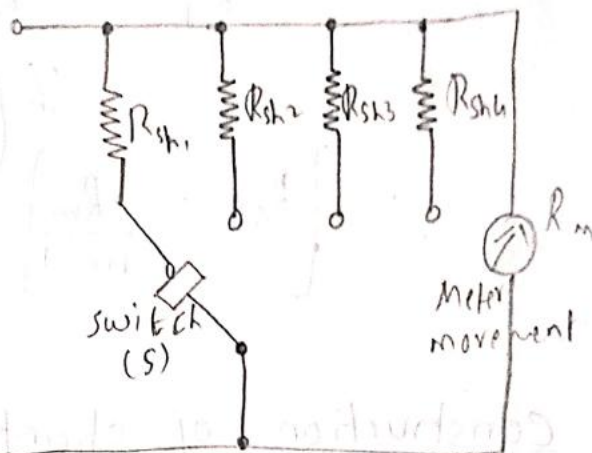 Rsh1
Rsh2
Rsh3
Rsh4
Rm
Meter
movement
switch
(S)